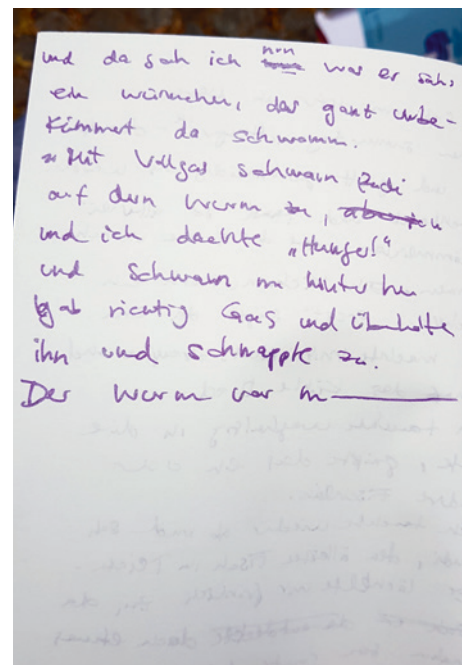 und da sah ich nun was er sah,
ein würmchen, das ganz unbe-
kümmert da schwamm.
Mit Vollgas schwamm
auf den Wurm zu,
und ich dachte „Hunger!“
und schwamm hinterher
gab richtig Gas und überholte
ihn und schnappte zu.
Der Wurm war m